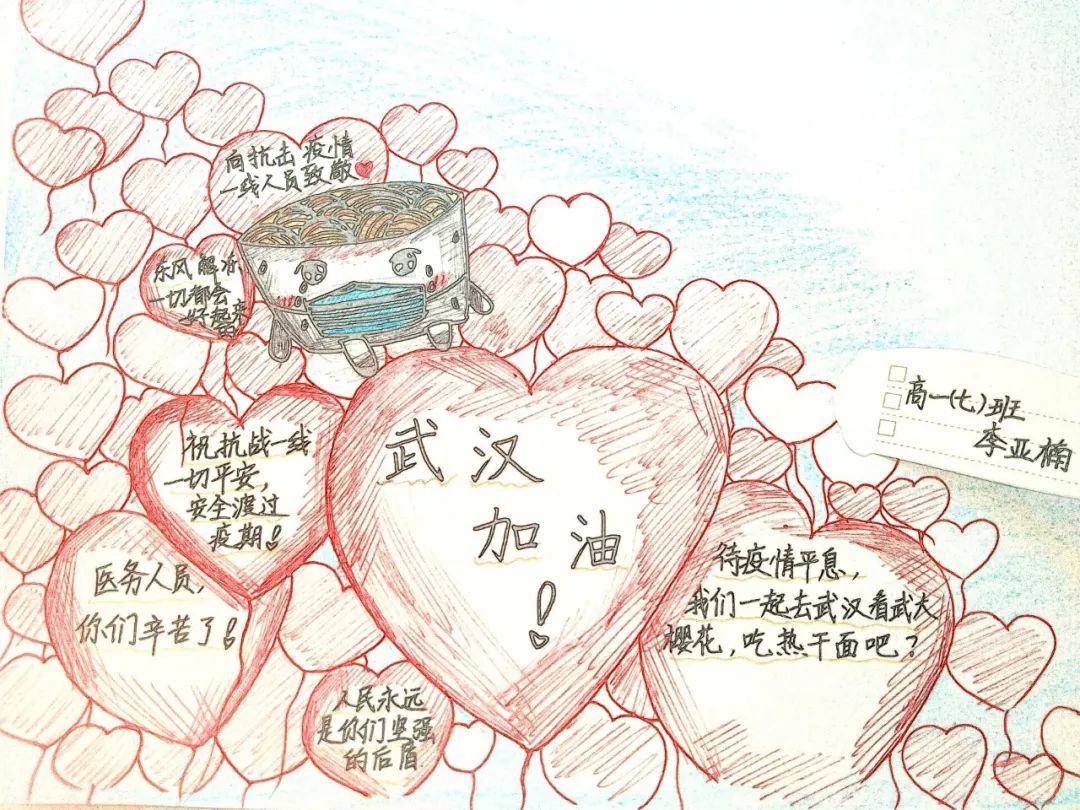 向抗击疫情
一线人员致敬
东风解冻
一切都会
好起来
的
祝抗战一线
一切平安,
安全渡过
疫期!
武汉
加油
!
高一(七)班
李亚楠
医务人员,
你们辛苦了!
待疫情平息,
我们一起去武汉看武大
樱花,吃热干面吧?
人民永远
是你们坚强
的后盾